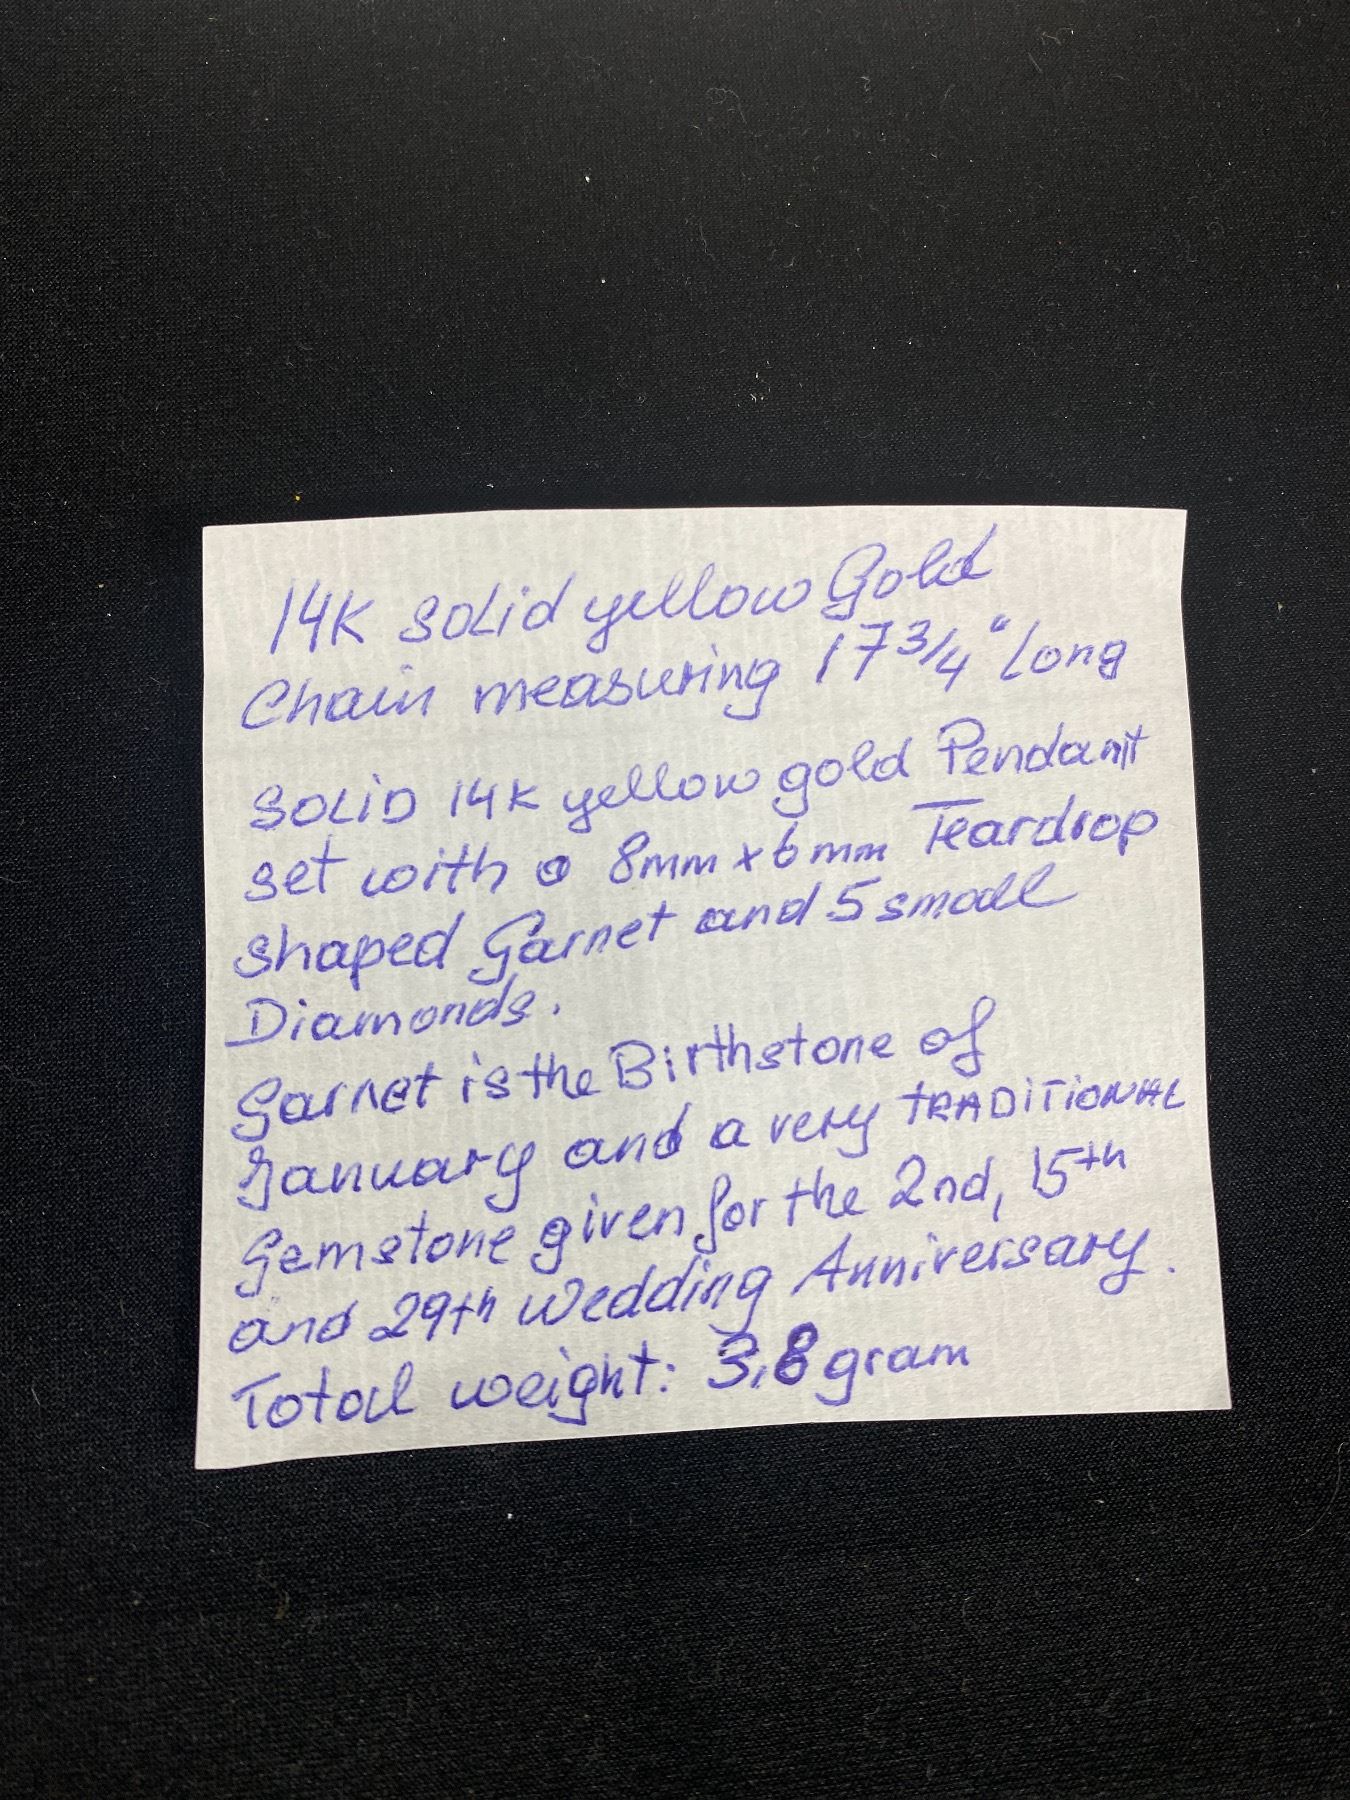 14K Solid yellow Gold
Chain measuring 17 3/4" long
SOLID 14K yellow gold Pendant
set with a 8mm x 6mm Teardrop
shaped Garnet and 5 small
Diamonds.
Garnet is the Birthstone of
January and a very TRADITIONAL
Gemstone given for the 2nd, 15th
and 29th Wedding Anniversary.
Total weight: 3.8 gram